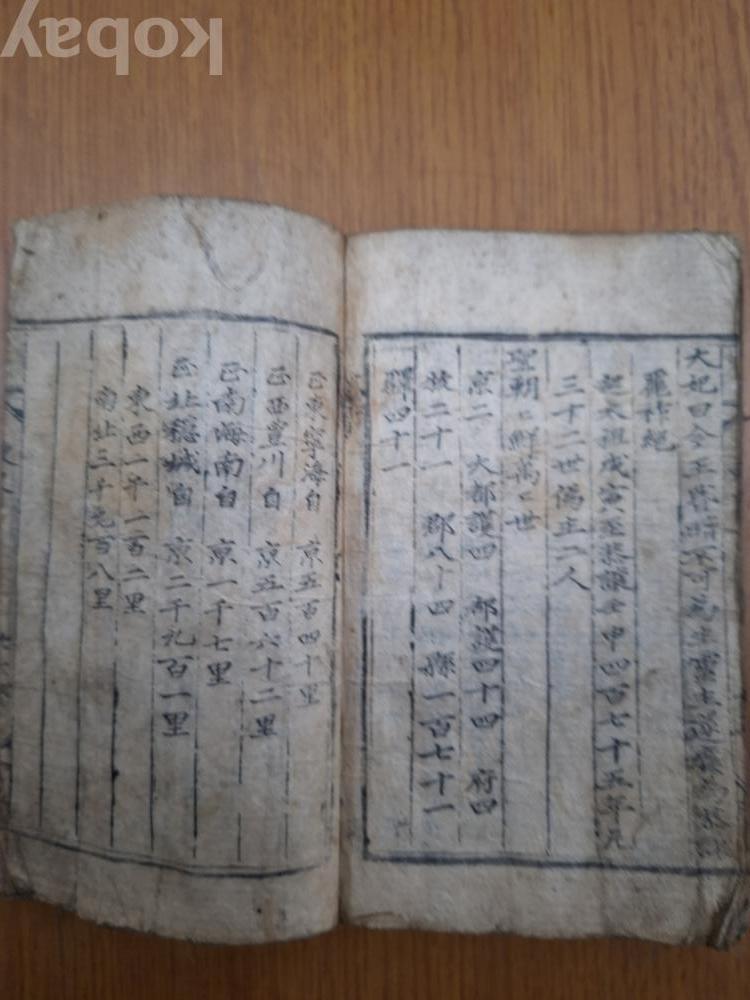 kobay
大妃曰今王昏暗不可為生霊主遂廃為
麗祚絶
起太祖戊寅至恭讓壬申四百七十五年元
三十二世偽主二人
聖朝〻鮮萬〻世
京二 大都護四 都護四十四 府四
牧二十一 郡八十四 縣一百七十一
驛四十一
正東寧海自 京五百四十里
正西豊川自 京五百六十二里
正南海南自 京一千七里
正北穏城自 京二千九百一里
東西一千一百二里
南北三千九百八里